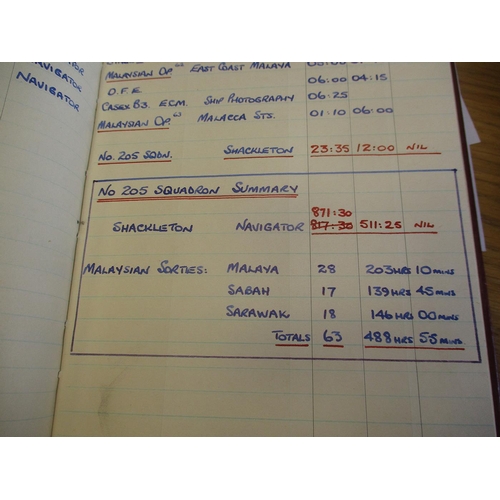 NAVIGATOR
NAVIGATOR
MALAYSIAN OP. EAST COAST MALAYA
O.F.E 06:00 04:15
CASEX B3. ECM. SHIP PHOTOGRAPHY 06:25
MALAYSIAN OP. 63 MALACCA STS. 01:10 06:00
NO. 205 SQDN. SHACKLETON 23:35 12:00 NIL
NO 205 SQUADRON SUMMARY
871:30
SHACKLETON NAVIGATOR 817:30 511:25 NIL
MALAYSIAN SORTIES: MALAYA 28 203 HRS 10 MINS
SABAH 17 139 HRS 45 MINS
SARAWAK 18 146 HRS 00 MINS
TOTALS 63 488 HRS 55 MINS.